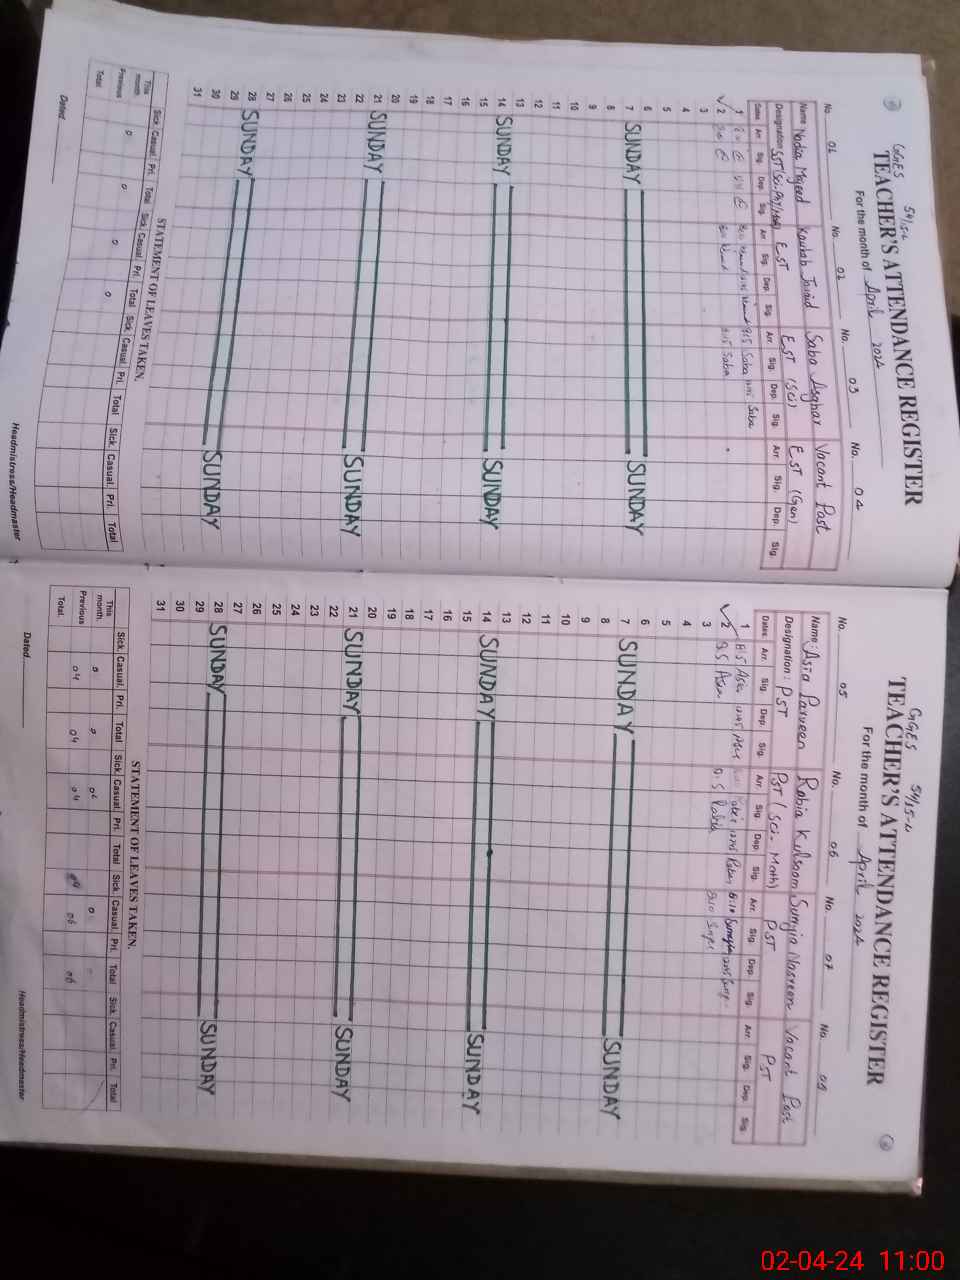 GGES 54/15-L
TEACHER'S ATTENDANCE REGISTER
For the month of April 2024
No. 01 No. 02 No. 03 No. 04
Name Nadia Majeed Javaid Saba Asghar Vacant Post
Designation EST EST (Sci) EST (Gen)
Dates Arr. Sig. Dep. Sig. Arr. Sig. Dep. Sig. Arr. Sig. Dep. Sig. Arr. Sig. Dep. Sig.
1 8:15 Saba Saba
2 8:15 Saba
3
4
5
6
7 SUNDAY SUNDAY
8
9
10
11
12
13
14 SUNDAY SUNDAY
15
16
17
18
19
20
21 SUNDAY SUNDAY
22
23
24
25
26
27
28 SUNDAY SUNDAY
29
30
31
STATEMENT OF LEAVES TAKEN.
Sick. Casual. Pri. Total Sick. Casual. Pri. Total Sick. Casual. Pri. Total Sick. Casual. Pri. Total
This month 0 0 0 0
Previous
Total
Dated
Headmistress/Headmaster
GGES 54/15-L
TEACHER'S ATTENDANCE REGISTER
For the month of April 2024
No. 05 No. 06 No. 07 No. 08
Name: Asia Parveen Rabia Kulsoom Sumyia Nasreen Vacant Post
Designation: PST PST (Sci-Math) PST PST
Dates Arr. Sig. Dep. Sig. Arr. Sig. Dep. Sig. Arr. Sig. Dep. Sig. Arr. Sig. Dep. Sig.
1 8:15 Asia 8:10 Sumyia
2 8:15 Asia 8:15 Rabia 8:10
3
4
5
6
7 SUNDAY SUNDAY
8
9
10
11
12
13
14 SUNDAY SUNDAY
15
16
17
18
19
20
21 SUNDAY SUNDAY
22
23
24
25
26
27
28 SUNDAY SUNDAY
29
30
31
STATEMENT OF LEAVES TAKEN.
Sick. Casual. Pri. Total Sick. Casual. Pri. Total Sick. Casual. Pri. Total Sick. Casual. Pri. Total
This month. 0 0 0
Previous 04 04 04 06 06
Total.
Dated
Headmistress/Headmaster
02-04-24 11:00